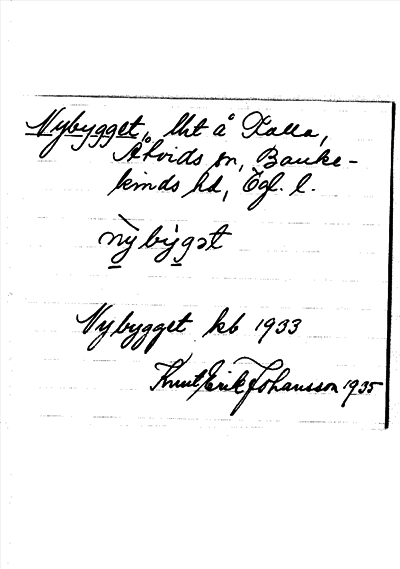 Nybygget, lht å Kalla,
Åtvids sn, Banke-
kinds hd, Ögl. l.
nỳbỳgət
Nybygget kb 1933
Knut Erik Johansson 1935